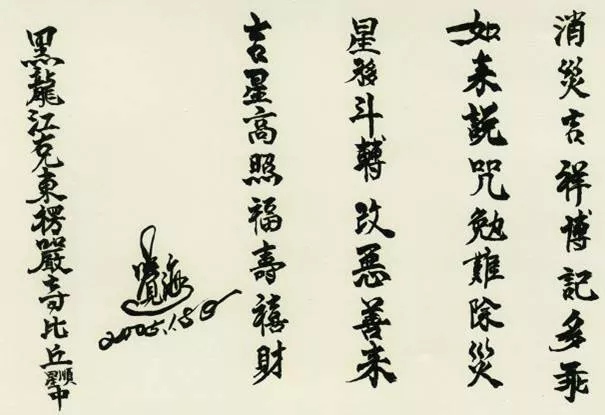 消災吉祥博記多
如来說咒勉難除災
星移斗轉改惡善来
吉星高照福壽禧財
覺海
黑龍江克東楞嚴寺比丘順星中